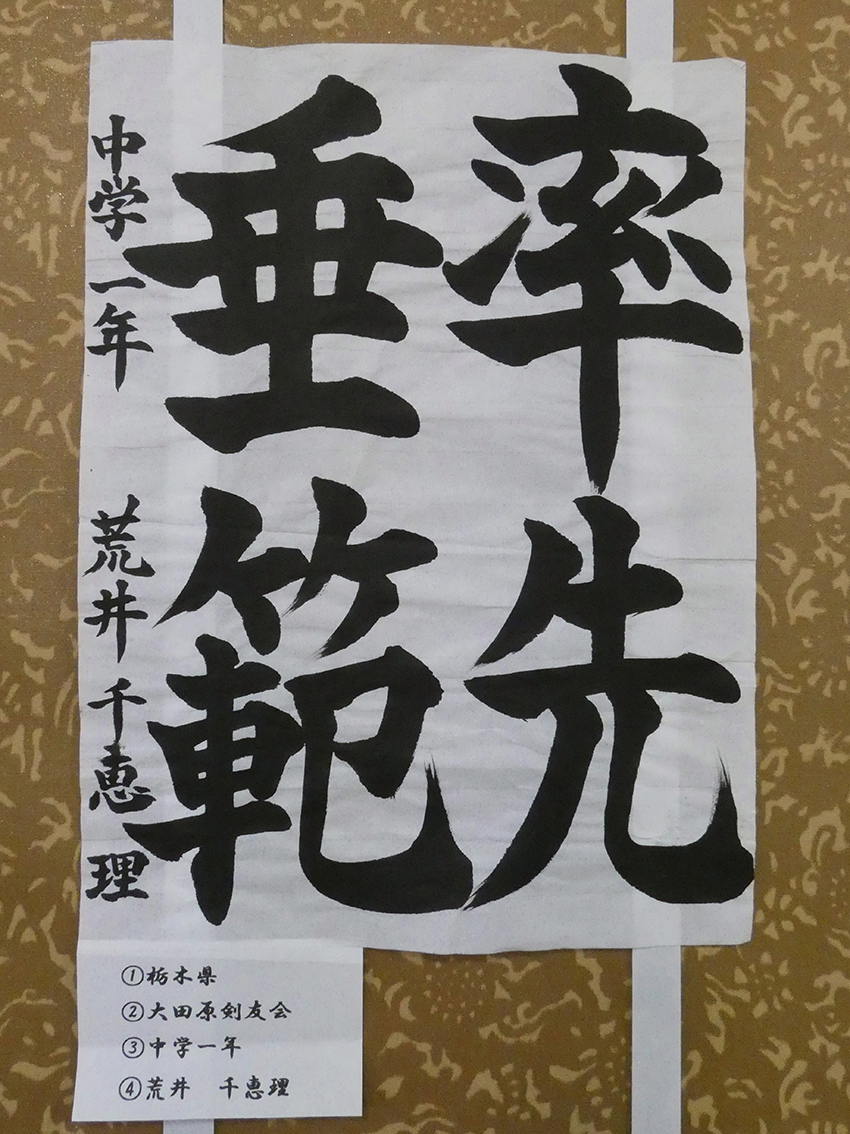 率先
垂範
中学一年 荒井千恵理
①栃木県
②大田原剣友会
③中学一年
④荒井 千恵理